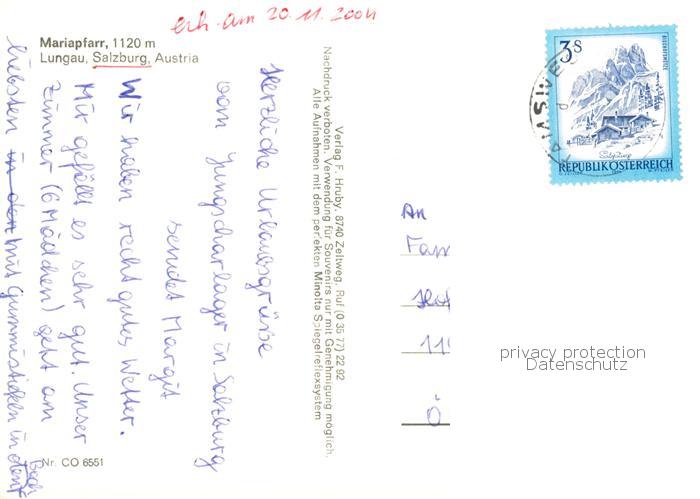 erh. am 20.11.2004
Mariapfarr, 1120 m
Lungau, Salzburg, Austria
Herzliche Urlaubsgrüße
vom Jungscharlager in Salzburg
sendet Margit
Wir haben recht gutes Wetter.
Mir gefällt es sehr gut. Unser
Zimmer (6 Mädchen) geht am
liebsten in den mit Gummistiefeln in den
Bach
Nr. CO 6551
Verlag F. Hruby, 8740 Zeltweg, Ruf (0 35 77) 22 92
Nachdruck verboten. Verwendung für Souvenirs nur mit Genehmigung möglich.
Alle Aufnahmen mit dem perfekten Minolta Spiegelreflexsystem
3 S
REPUBLIK ÖSTERREICH
TAMSWEG
An
Fam
11
Ö
privacy protection
Datenschutz